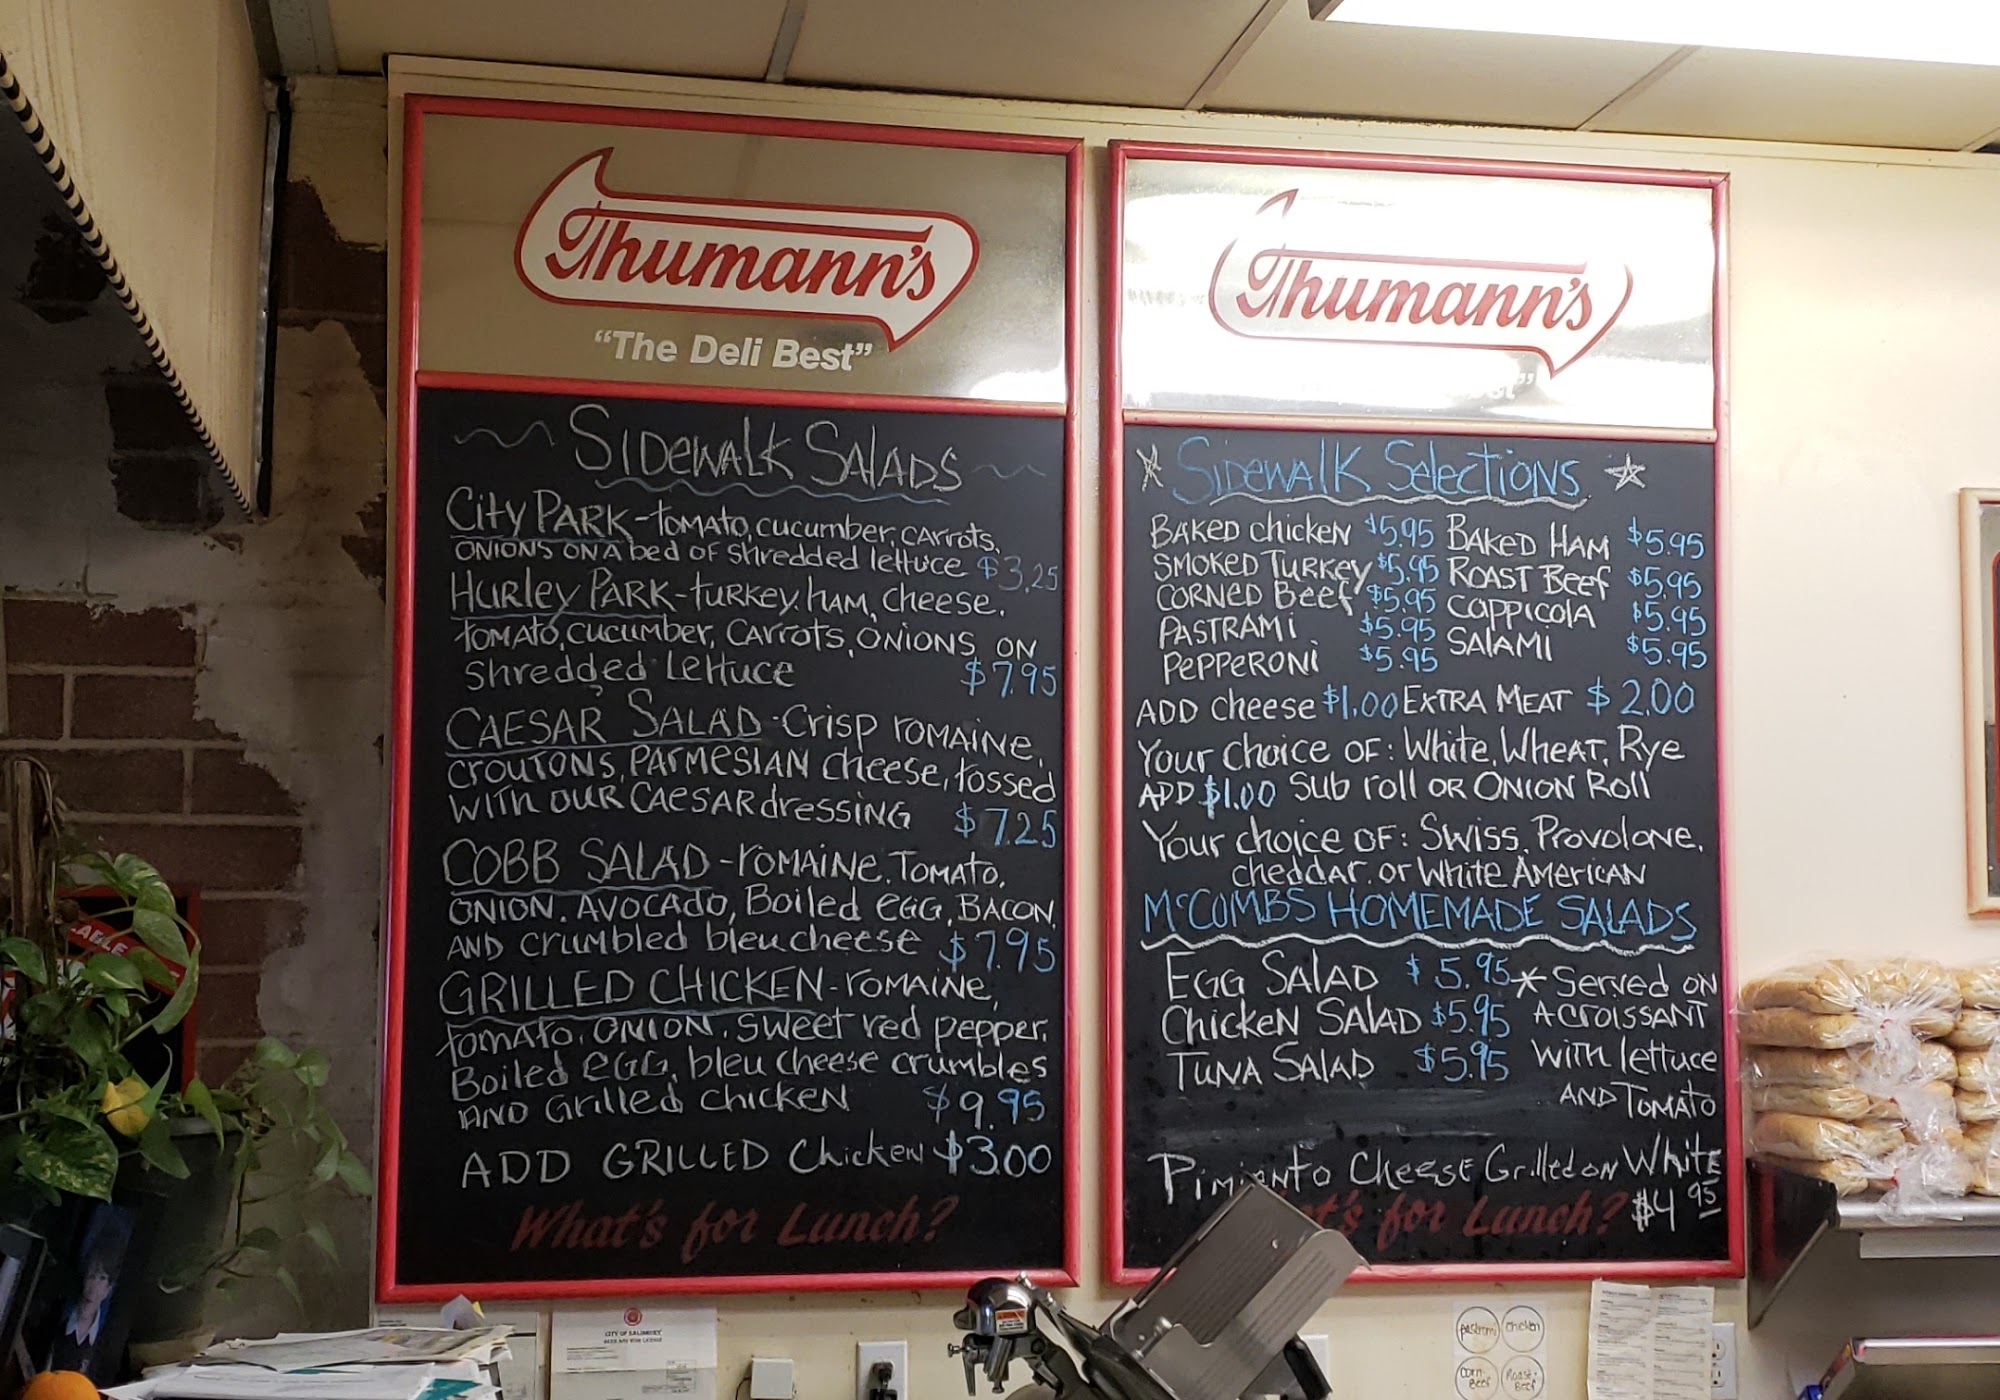 Thumann's
"The Deli Best"
Sidewalk Salads
City Park - tomato, cucumber, carrots,
onions on a bed of shredded lettuce $3.25
Hurley Park - turkey, ham, cheese,
tomato, cucumber, carrots, onions on
shredded lettuce $7.95
Caesar Salad - Crisp romaine,
croutons, parmesian cheese, tossed
with our Caesar dressing $7.25
Cobb Salad - romaine, Tomato,
onion, Avocado, Boiled egg, Bacon,
and crumbled bleu cheese $7.95
Grilled Chicken - romaine,
tomato, onion, sweet red pepper,
Boiled egg, bleu cheese crumbles
and Grilled chicken $9.95
ADD GRILLED Chicken $3.00
What's for Lunch?
Thumann's
Sidewalk Selections
Baked chicken $5.95 Baked Ham $5.95
Smoked Turkey $5.95 Roast Beef $5.95
Corned Beef $5.95 Cappicola $5.95
Pastrami $5.95 Salami $5.95
Pepperoni $5.95
ADD cheese $1.00 Extra Meat $2.00
Your choice of: White, Wheat, Rye
ADD $1.00 Sub roll or Onion Roll
Your choice of: Swiss, Provolone,
cheddar, or White American
McCombs Homemade Salads
Egg Salad $5.95 * Served on
Chicken Salad $5.95 a croissant
Tuna Salad $5.95 with lettuce
and Tomato
Pimiento Cheese Grilled on White
$4.95
for Lunch?
City of Salisbury
pastrami
chicken
Corn-
Beef
Roast-
Beef